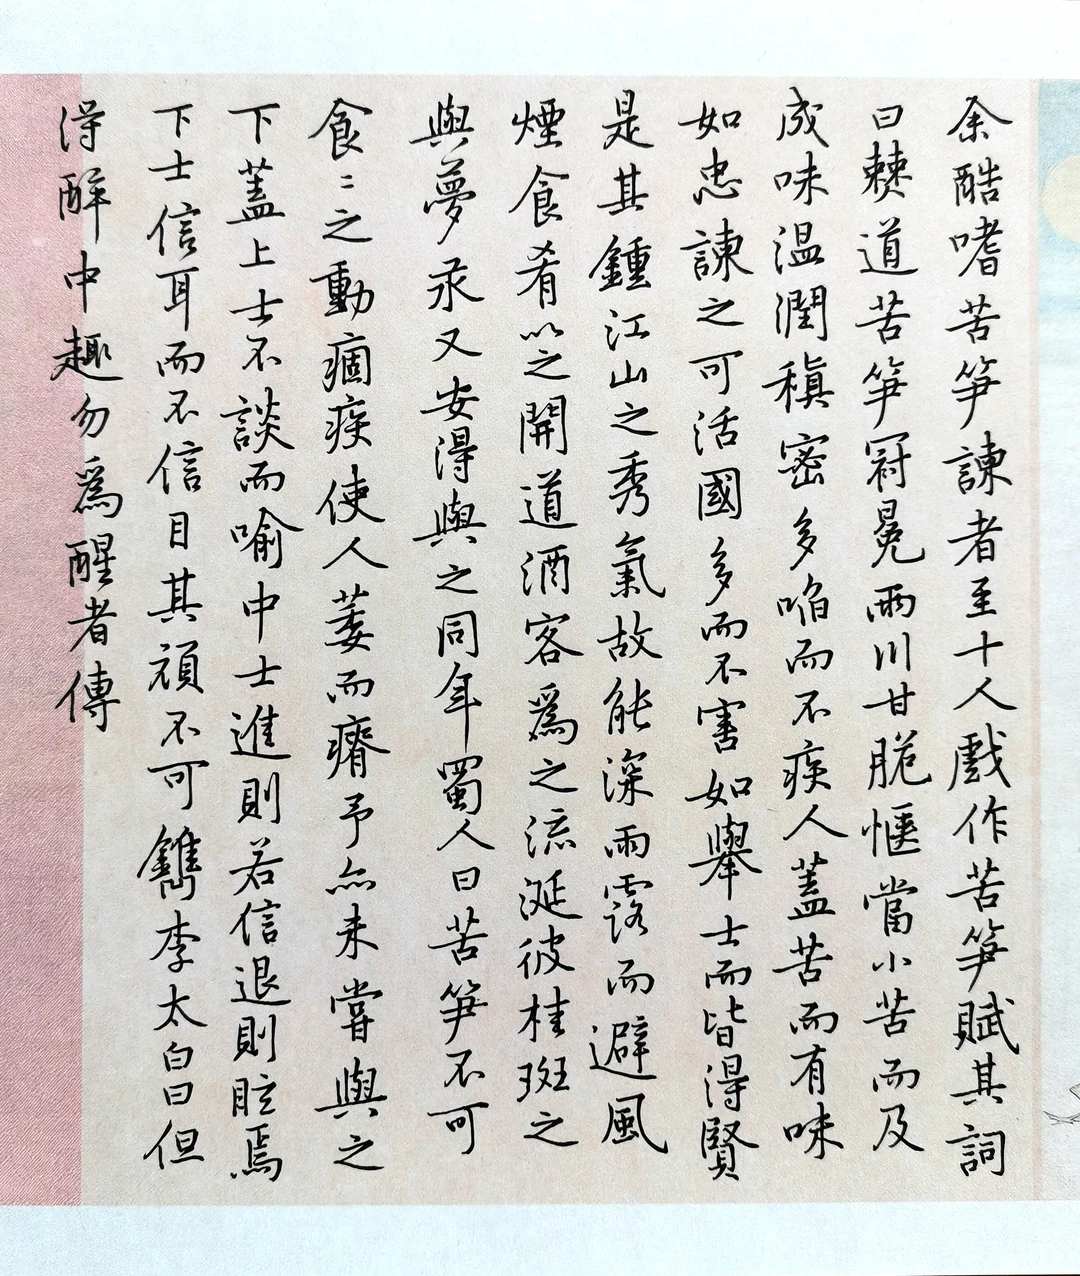 余酷嗜苦笋諫者至十人戲作苦笋賦其詞
曰僰道苦笋冠冕兩川甘脆愜當小苦而及
成味温潤稹密多啗而不疾人蓋苦而有味
如忠諫之可活國多而不害如舉士而皆得賢
是其鍾江山之秀氣故能深雨露而避風
煙食肴以之開道酒客為之流涎彼桂斑之
與夢汞又安得與之同年蜀人曰苦笋不可
食〻之動痼疾使人萎而瘠予亦未嘗與之
下蓋上士不談而喻中士進則若信退則眩焉
下士信耳而不信目其頑不可鐫李太白曰但
得醉中趣勿為醒者傳